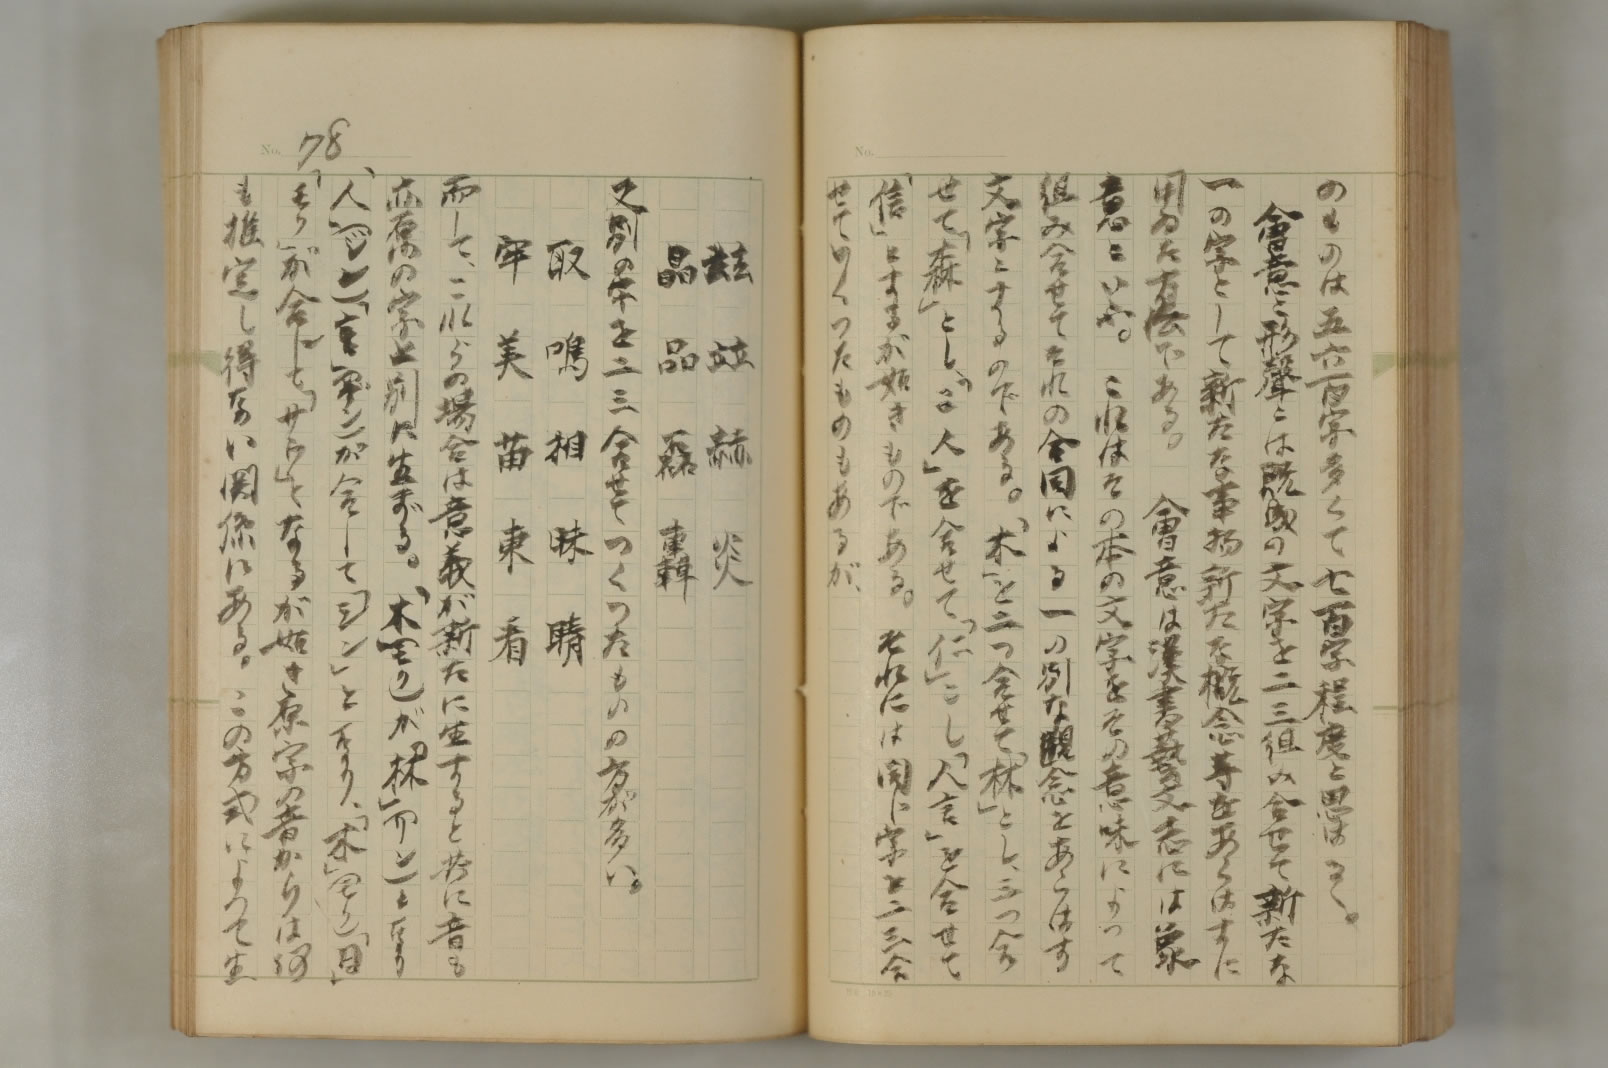 のものは五六百字多くて七百字程度と思はるゝ。
會意と形聲とは既成の文字を二三組み合せて新たな
一の字として新たな事物新たな概念等をあらはすに
用ゐた方法である。 會意は漢書藝文志には象
意といふ。 これはその本の文字をその意味によつて
組み合せてそれの合同による一の別な観念をあらはす
文字とするのである。「木」を二つ合せて「林」とし、三つ合
せて「森」とし、「二人」を合せて「仁」とし「人言」を合せて
「信」とするが如きものである。 それには同じ字を二三合
せてつくつたものもあるが、
No.
No. 78
玆 竝 赫 炎
晶 品 磊 轟
又別の字を二三合せてつくつたものの方が多い。
取 鳴 相 昧 晴
牢 美 苗 東 看
而して、これらの場合は意義が新たに生すると共に音も
亦原の字と別に生ずる。「木(モク)」が「林」(リン)となり
「人」(ジン)と「言」(ゲン)が合して「シン」となり、「木」(モク)「日」
が合して「サウ」となるが如き原字の音からは何
も推定し得ない関係にある。この方式によつて生